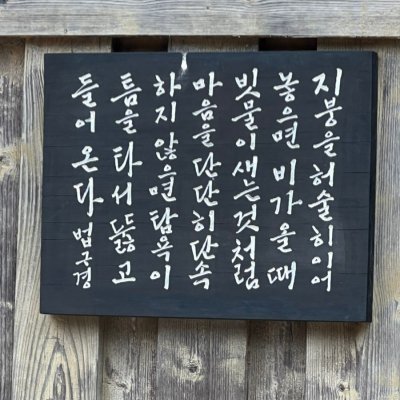 지붕을허술히이어
놓으면 비가올때
빗물이새는것처럼
마음을단단히단속
하지 않으면탐욕이
틈을 타서 뚫고
들어 온다 법구경